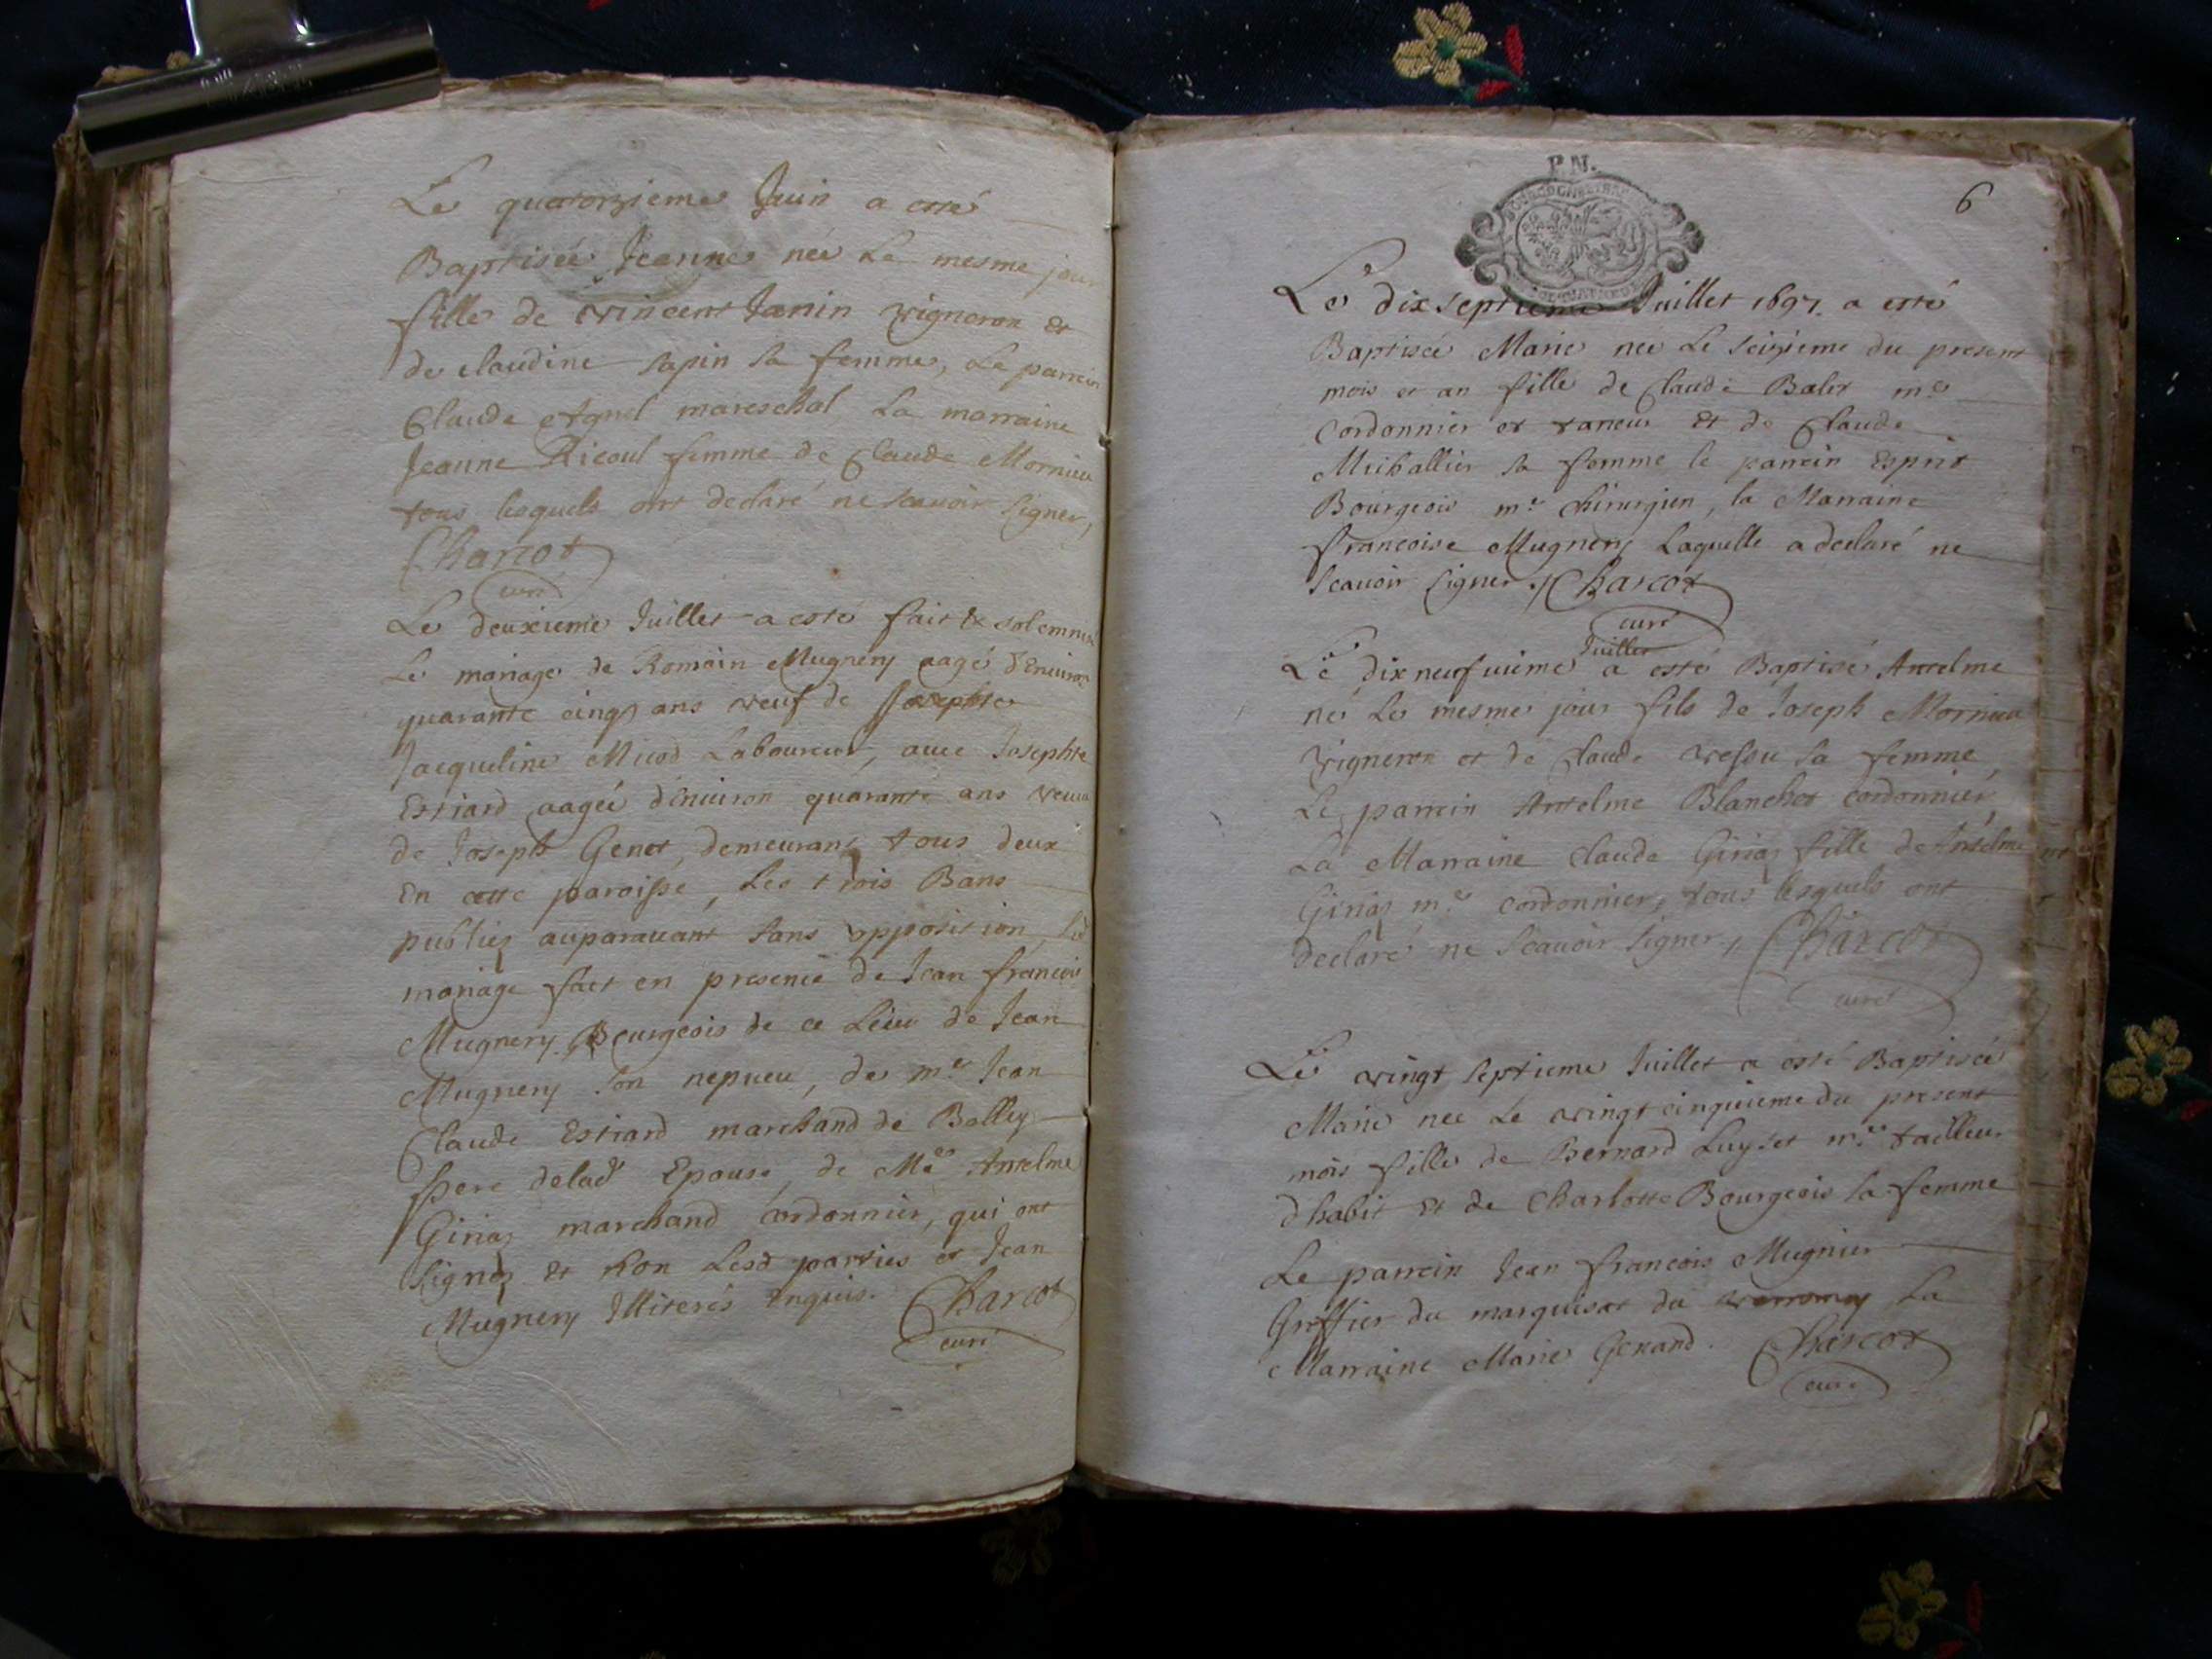 Le quatorzieme Juin a esté
Baptisée Jeanne née Le mesme jour
fille de vincent Janin vigneron et
de claudine sapin sa femme, Le parrein
Claude Agnel mareschal La marraine
Jeanne Ricoul femme de Claude Mornieu
tous lesquels ont declaré ne scauoir signer,
Charcot
curé
Le deuxieme Juillet a esté fait & solemnisé
Le mariage de Romain Mugnery aagé d'Enuiron
quarante cinq ans veuf de
Jacqueline Micod Laboureur, auec Josephte
Estiard aagée d'Enuiron quarante ans veuue
de Joseph Genet, demeurans tous deux
En cette paroisse, Les trois Bans
publiez auparauant sans opposition, Led
mariage fait en presence de Jean francois
Mugnery Bourgeois de ce Lieu de Jean
Mugnery son nepueu, de mre Jean
Claude Estiard marchand de Belley
frere delad Epouse, de Me Antelme
Giriaz marchand cordonnier, qui ont
signez et non Lesd parties et Jean
Mugnery Illiterés Enquis. Charcot
curé
P.N.
6
Le dix septieme Juillet 1697 a esté
Baptisée Marie née Le seizieme du present
mois et an fille de Claude Balet me
Cordonnier et taneur Et de Claude
sa femme le parrein Esprit
Bourgeois mre chirurgien, la Marraine
francoise Mugnery Laquelle a declaré ne
scauoir signer, Charcot
curé
Juillet
Le dix neufuieme a esté Baptisé Antelme
né Le mesme jour fils de Joseph Mornieu
Vigneron et de Claude vessu sa femme,
Le parrein Antelme Blanchet cordonnier
La Marraine Claude Giriaz fille de Antelme
Giriaz mre cordonnier, tous lesquels ont
declaré ne scauoir signer, Charcot
curé
Le vingt septieme Juillet a esté Baptisée
Marie née Le vingt cinquieme du present
mois fille de Bernard Luyset mre tailleur
d'habit Et de Charlotte Bourgeois sa femme
Le parrein Jean francois Mugnier
Greffier du marquisat du verromey La
Marraine Marie Genand. Charcot
curé